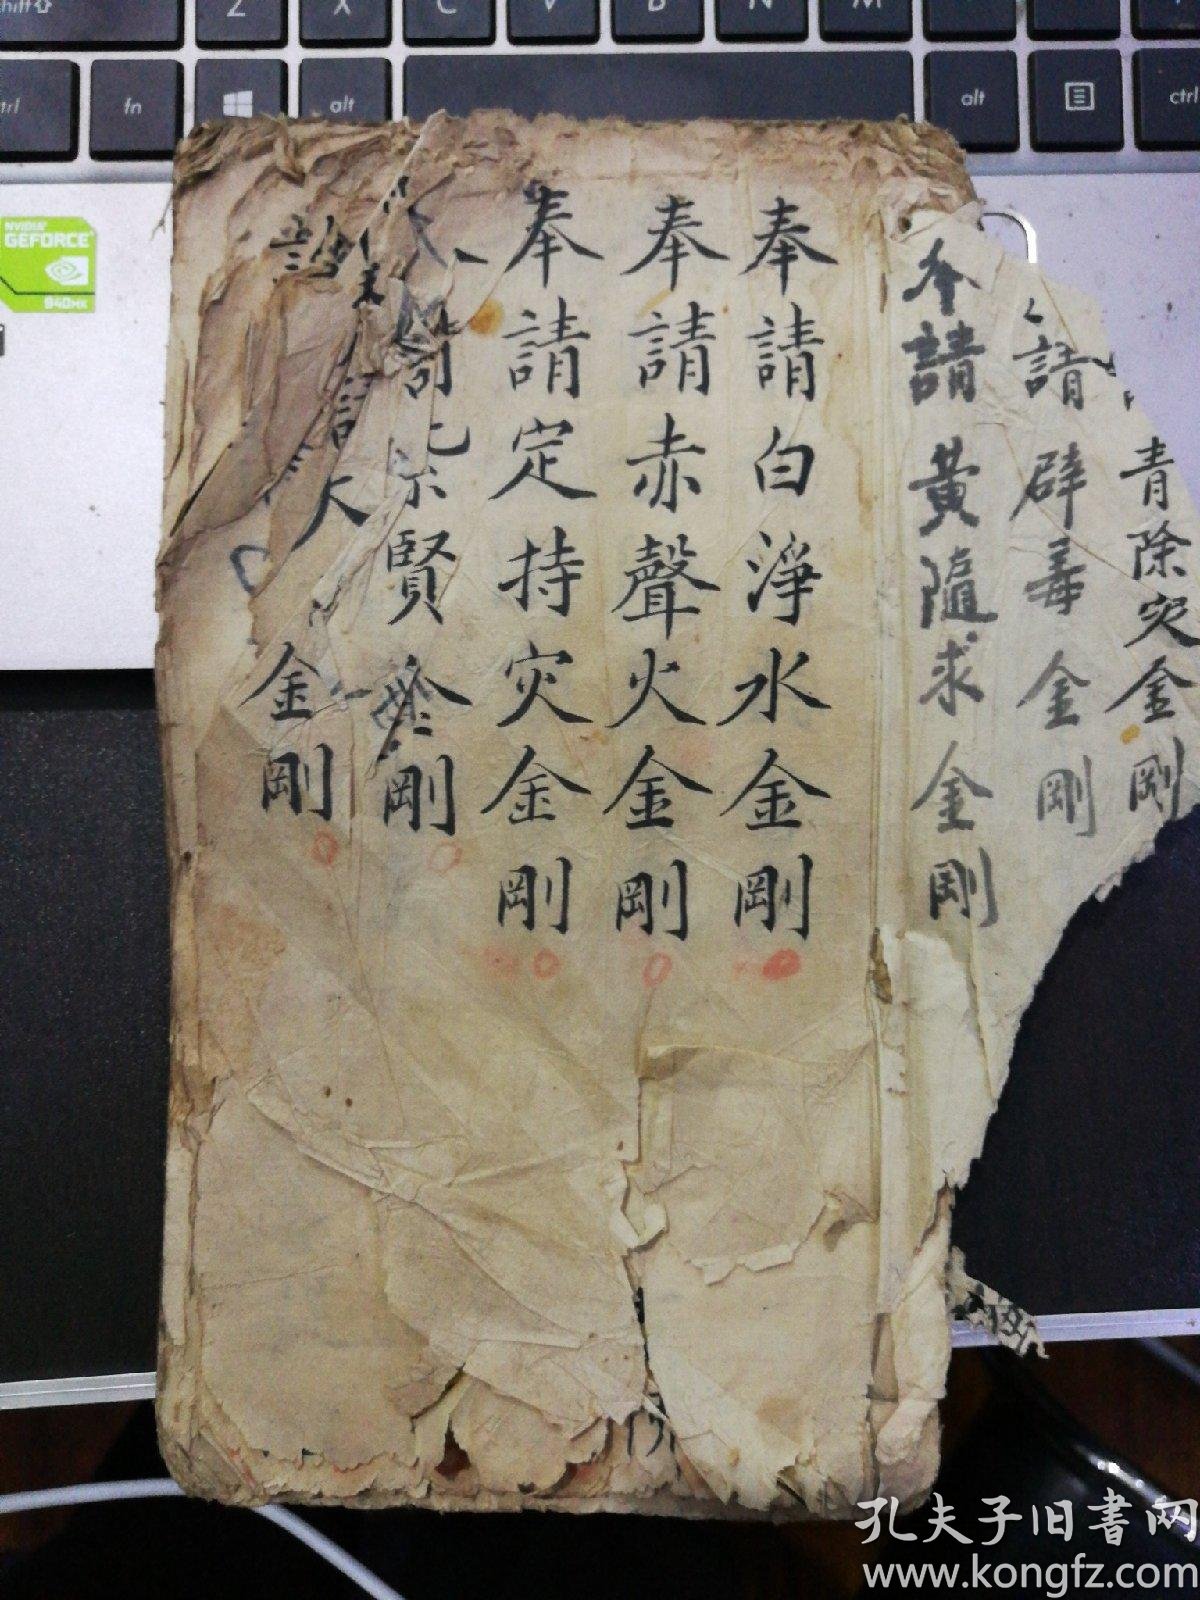 青除灾金剛
請辟毒金剛
奉請黃隨求金剛
奉請白淨水金剛
奉請赤聲火金剛
奉請定持灾金剛
賢金剛
大
金剛
shift
Z
X
C
V
B
N
M
ctrl
fn
alt
alt
ctrl
NVIDIA
GEFORCE
940MX
孔夫子旧书网
www.kongfz.com